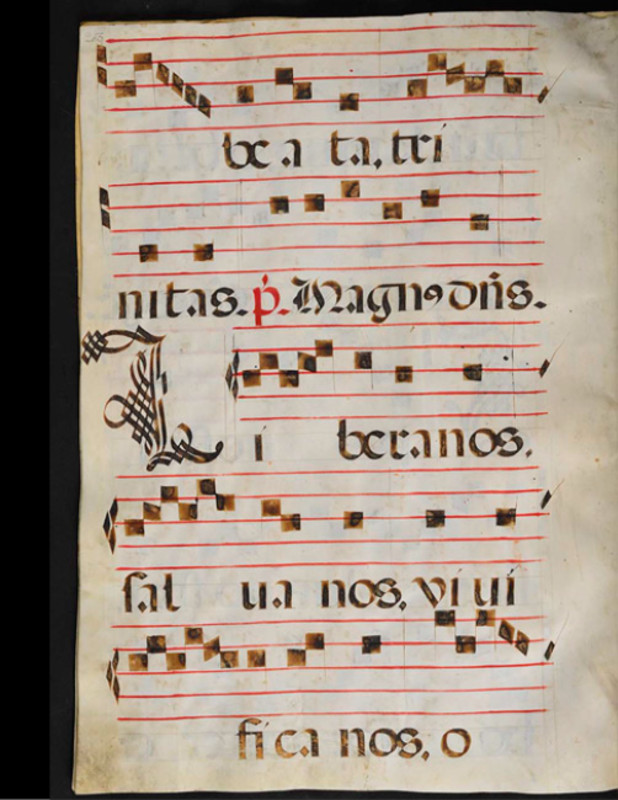 be a ta, tri
nitas. p̃. Magnꝰ dñs.
Li beranos.
sal ua nos, viui
fi ca nos, o